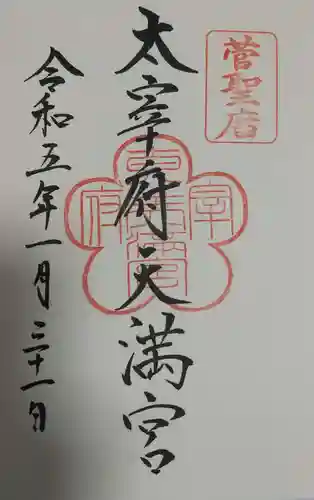 菅聖庿
太宰府天満宮
令和五年一月三十一日